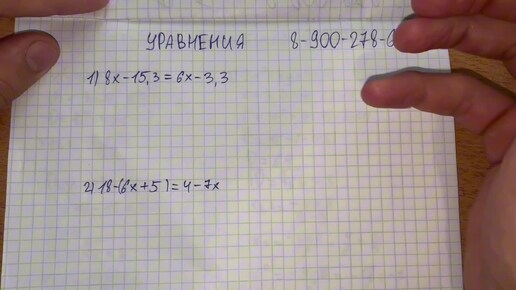 УРАВНЕНИЯ 8-900-278-6
1) 8x-15,3=6x-3,3
2) 18-(6x+5)=4-7x